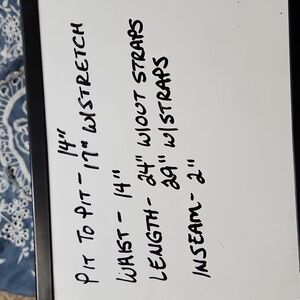 PIT TO PIT - 14"
17" W/STRETCH
WAIST - 14"
LENGTH - 24" W/OUT STRAPS
29" W/STRAPS
INSEAM - 2"